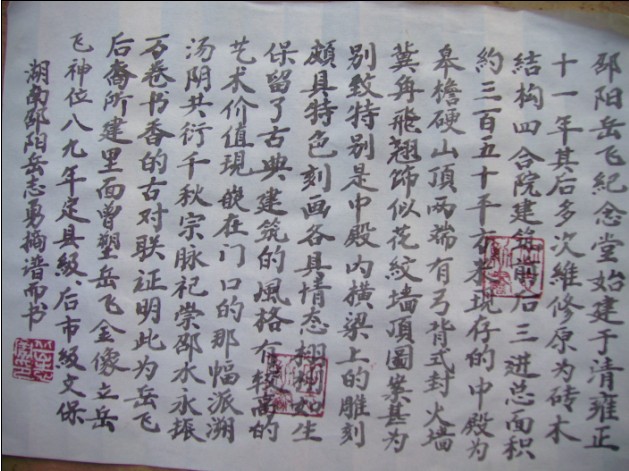 邵阳岳飞纪念堂始建于清雍正
十一年其后多次維修原为砖木
结构四合院建筑前后三进总面积
約三百五十平方米現仔的中殿为
皋檐硬山頂两端有弓背式封火墙
冀角飛翘饰似花紋墙頂圖案甚为
别致特别是中殿内横梁上的雕刻
頗具特色刻画各具情态栩栩如生
保留了古典建筑的風格有较高的
艺术价值現嵌在门口的那幅派溯
汤阴共衍千秋宗脉祀崇邵水永振
万卷书香的古对联证明此为岳飞
后裔所建里面曾塑岳飞金像立岳
飞神位八九年定县級、后市级文保
湖南邵阳岳志勇摘谱而书